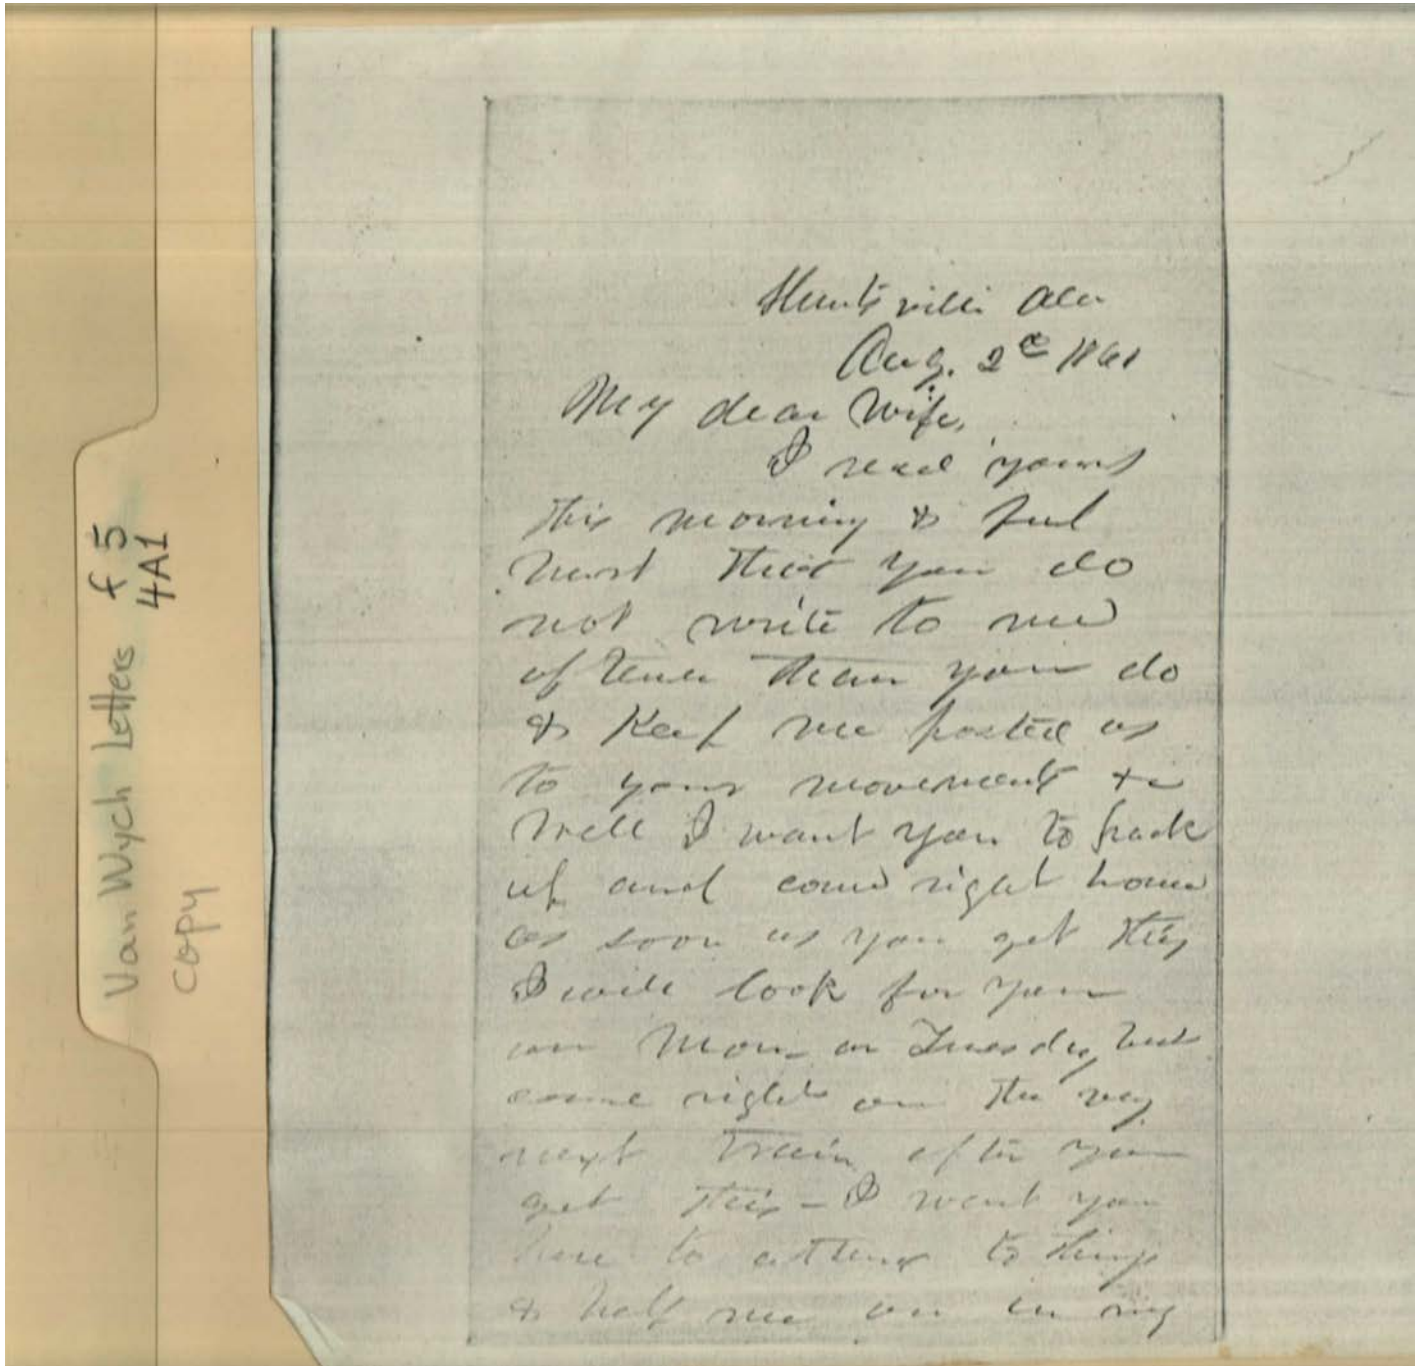 Van Wych Letters f 5
4A1
COPY
Huntsville Ala
Aug. 2d 1861
My dear Wife,
I recd yours
this morning & feel
hurt that you do
not write to me
oftener than you do
& keep me posted as
to your movements &c
Well I want you to pack
up and come right home
as soon as you get this
I will look for you
on Mon- or Tuesday, but
come right on the very
next train after you
get this - I want you
here to attend to things
& help me on in my